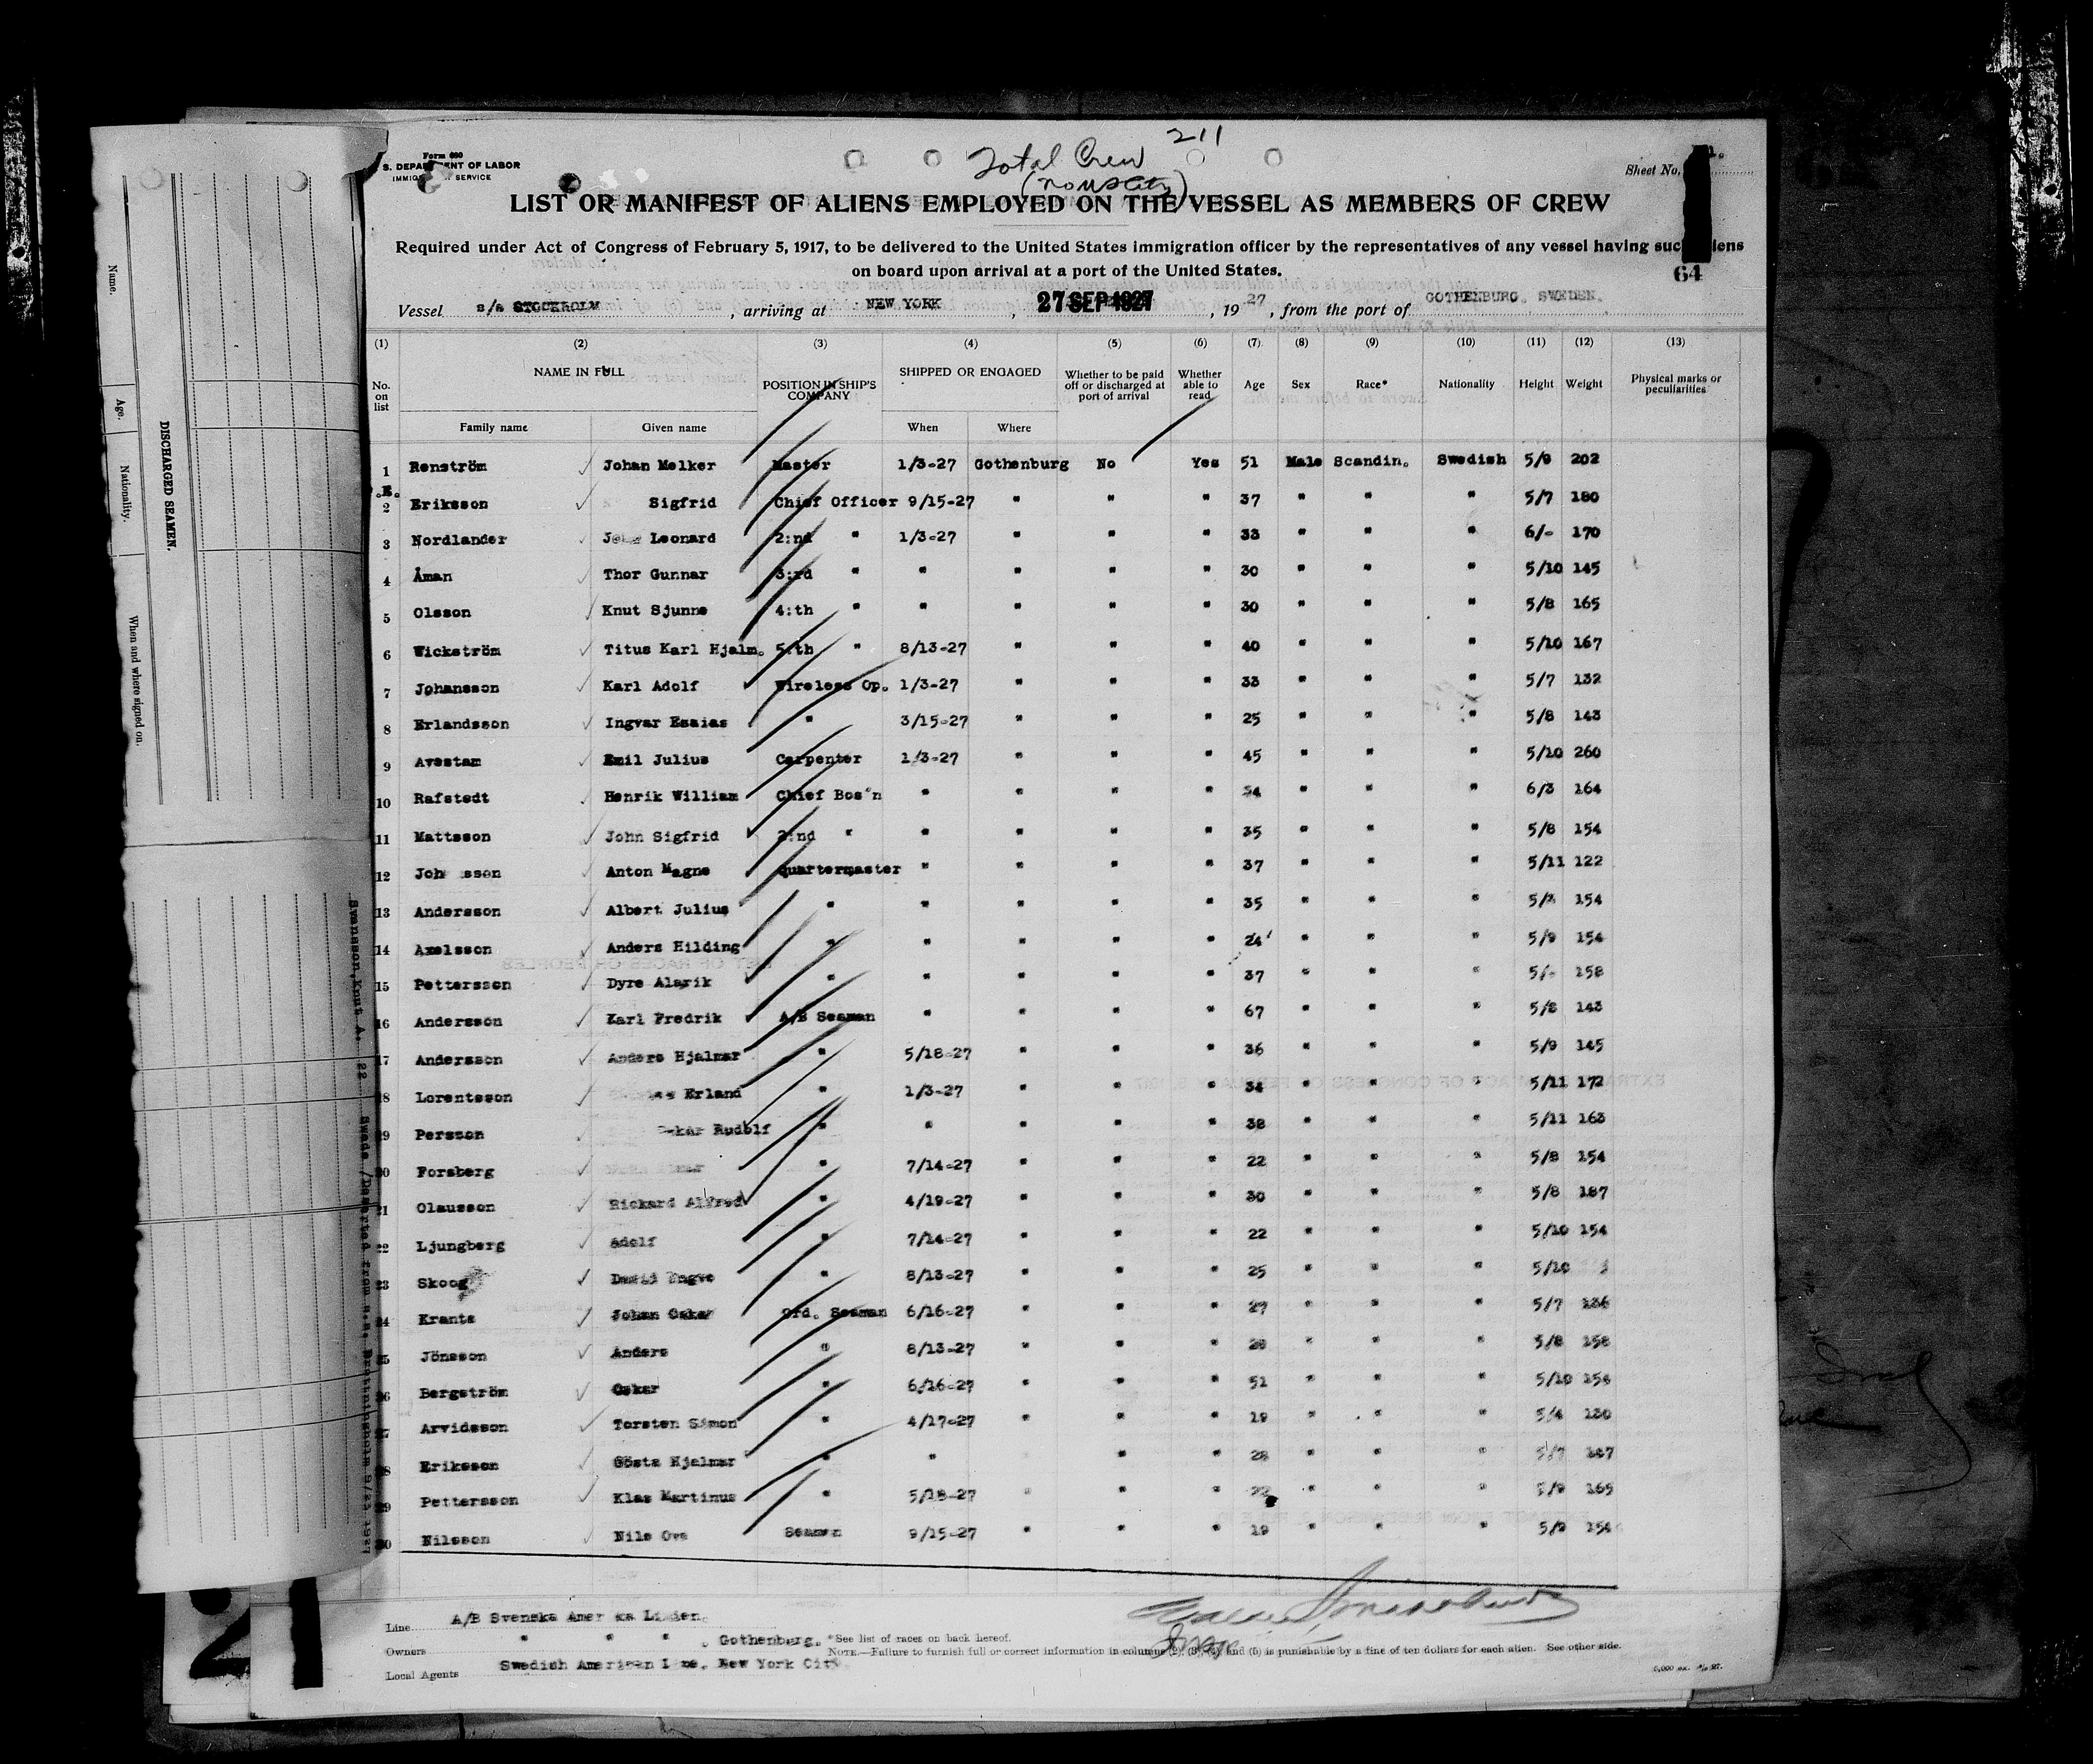 Form 680
S. DEPARTMENT OF LABOR
IMMIGRATION SERVICE
211
Total Crew
Sheet No.
LIST OR MANIFEST OF ALIENS EMPLOYED ON THE VESSEL AS MEMBERS OF CREW
Required under Act of Congress of February 5, 1917, to be delivered to the United States immigration officer by the representatives of any vessel having such aliens
on board upon arrival at a port of the United States.
64
Vessel s/s STOCKHOLM , arriving at NEW YORK , 27 SEP 1927 , 19 27 , from the port of GOTHENBURG, SWEDEN.
(1) (2) (3) (4) (5) (6) (7) (8) (9) (10) (11) (12) (13)
No. on list NAME IN FULL POSITION IN SHIP'S COMPANY SHIPPED OR ENGAGED Whether to be paid off or discharged at port of arrival Whether able to read Age Sex Race* Nationality Height Weight Physical marks or peculiarities
Family name Given name When Where
1 Renström Johan Melker Master 1/3-27 Gothenburg No Yes 51 Male Scandin. Swedish 5/9 202
2 Eriksson Sigfrid Chief Officer 9/15-27 " " " 37 " " " 5/7 180
3 Nordlander Leonard 2:nd " 1/3-27 " " " 33 " " " 6/- 170
4 Åman Thor Gunnar 3:rd " " " " 30 " " " 5/10 145
5 Olsson Knut Sjunne 4:th " " " " " 30 " " " 5/8 165
6 Wickström Titus Karl Hjalm. 5:th " 8/13-27 " " " 40 " " " 5/10 167
7 Johansson Karl Adolf Wireless Op. 1/3-27 " " " 33 " " " 5/7 132
8 Erlandsson Ingvar Esaias " 3/15-27 " " " 25 " " " 5/8 143
9 Avestam Emil Julius Carpenter 1/3-27 " " " 45 " " " 5/10 260
10 Rafstedt Henrik William Chief Bos'n " " " " 34 " " " 6/3 164
11 Mattsson John Sigfrid 2:nd " " " " " 35 " " " 5/8 154
12 Anton Magne Quartermaster " " " " 37 " " " 5/11 122
13 Andersson Albert Julius " " " " " 35 " " " 154
14 Axelsson Anders Hilding " " " " " 24 " " " 5/9 154
15 Pettersson Dyre Alarik " " " " " 37 " " " 158
16 Andersson Karl Fredrik A/B Seaman " " " " 67 " " " 5/8 143
17 Andersson Anders Hjalmar " 5/18-27 " " " 36 " " " 5/9 145
18 Lorentsson Erland " 1/3-27 " " " 34 " " " 5/11 172
19 Persson Oskar Rudolf " " " " " 38 " " " 5/11 163
20 Forsberg " 7/14-27 " " " 22 " " " 5/8 154
21 Olausson Rickard Alfred " 4/19-27 " " " 30 " " " 5/8 187
22 Ljungberg Adolf " 7/14-27 " " " 22 " " " 5/10 154
23 Skoog David Yngve " 8/13-27 " " " 25 " " " 5/10
24 Krantz Johan Oskar Ord. Seaman 6/16-27 " " " 27 " " " 5/7 136
25 Jönsson Anders " 8/13-27 " " " " " " 5/8 158
26 Bergström Oskar " 6/16-27 " " " 51 " " " 5/10 154
27 Arvidsson Torsten Simon " 4/17-27 " " " 19 " " " 5/4 130
28 Eriksson Gösta Hjalmar " " " " 28 " " " 5/7 147
29 Pettersson Klas Martinus " 5/18-27 " " " 22 " " " 5/9 165
30 Nilsson Nils Ove Seaman 9/15-27 " " " 19 " " " 5/9 154
Line A/B Svenska Amerika Linien
Owners " " " , Gothenburg. *See list of races on back hereof.
NOTE.—Failure to furnish full or correct information in columns (2), (3), (4) and (5) is punishable by a fine of ten dollars for each alien. See other side.
Local Agents Swedish American Line, New York City
DISCHARGED SEAMEN.
Name.
Age.
Nationality.
When and where signed on.
Svensson, Knut A. 22 Swede